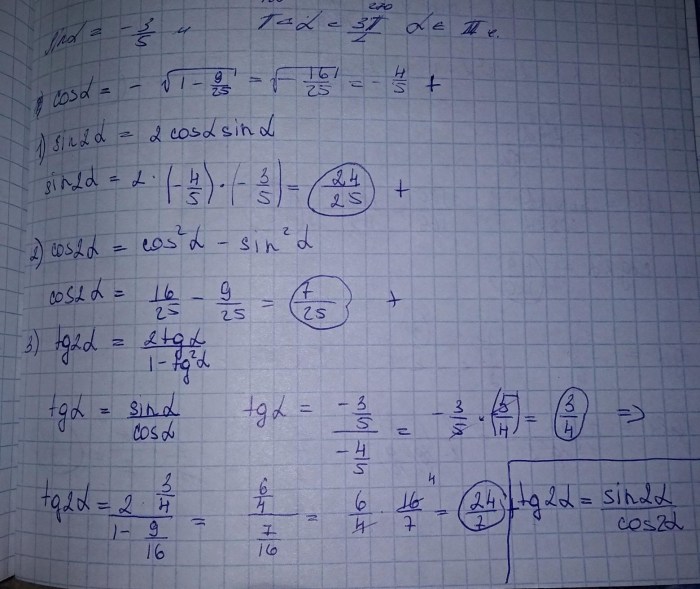 sinα = -3/5 и π < α < 3π/2 α ∈ III ч.
cosα = - √(1 - 9/25) = √(-16/25) = -4/5 +
1) sin2α = 2cosα sinα
sin2α = 2 · (-4/5) · (-3/5) = 24/25 +
2) cos2α = cos²α - sin²α
cos2α = 16/25 - 9/25 = 7/25 +
3) tg2α = 2tgα/(1 - tg²α)
tgα = sinα/cosα tgα = (-3/5)/(-4/5) = -3/5 · (5/4) = 3/4 ⇒
tg2α = (2 · 3/4)/(1 - 9/16) = (6/4)/(7/16) = 6/4 · 16/7 4 = 24/7
tg2α = sin2α/cos2α